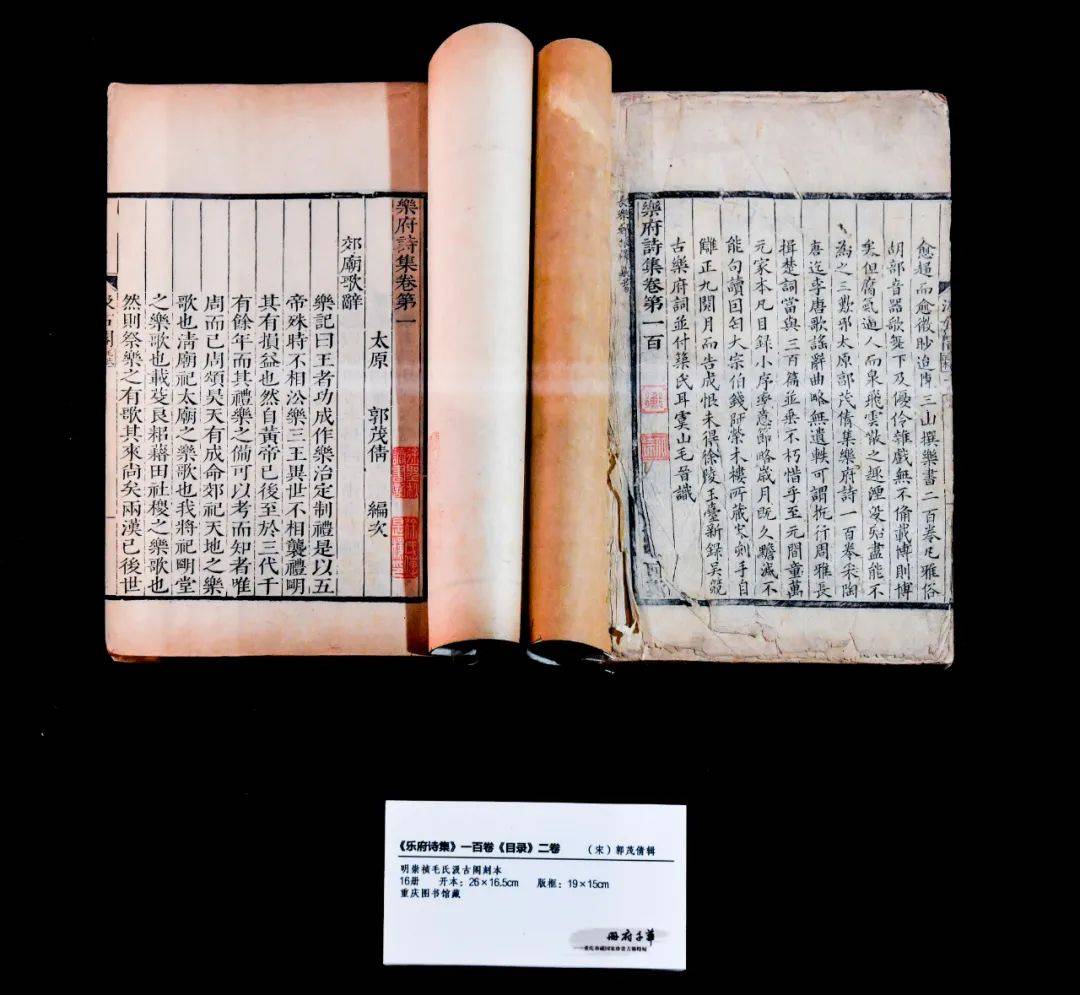 愈趨而愈微眇迨博三山撰樂書二百卷凡雅俗
胡部音器歌舞下及優伶雜戲無不備載博則博
矣但腐氣逼人而泉飛雲散之趣湮沒殆盡能不
為之三歎邪太原郭茂倩集樂府詩一百卷采陶
唐迄李唐歌謠辭曲略無遺軼可謂抗行周雅長
揖楚詞當與三百篇並垂不朽惜乎至元間童萬
元家本凡目錄小序率意節略歲月既久蠹滅不
能句讀因匄大宗伯錢師榮木樓所藏宋刻手自
讎正九閱月而告成恨未得徐陵玉臺新錄吳兢
古樂府詞並付築氏耳虞山毛晉識
樂府詩集卷第一百
樂府詩集卷第一
太原 郭茂倩 編次
郊廟歌辭
樂記曰王者功成作樂治定制禮是以五
帝殊時不相沿樂三王異世不相襲禮明
其有損益也然自黃帝已後至於三代千
有餘年而其禮樂之備可以考而知者唯
周而已周頌昊天有成命郊祀天地之樂
歌也清廟祀太廟之樂歌也我將祀明堂
之樂歌也載芟良耜藉田社稷之樂歌也
然則祭樂之有歌其來尚矣兩漢已後世
《乐府诗集》一百卷《目录》二卷 （宋）郭茂倩辑
明崇祯毛氏汲古阁刻本
16册 开本：26×16.5cm 版框：19×15cm
重庆图书馆藏
册府千华